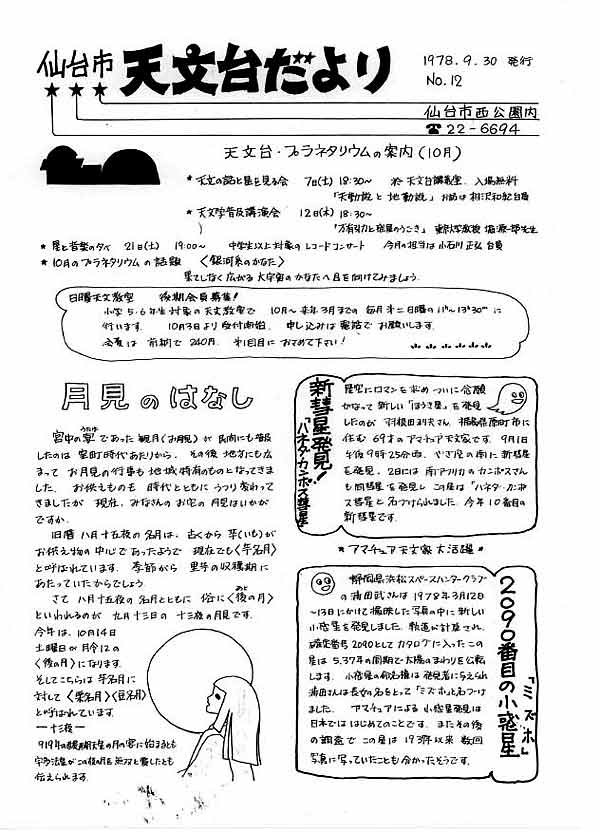 仙台市 天文台だより
1978.9.30 発行
No.12
仙台市西公園内
☎22-6694
天文台・プラネタリウムの案内(10月)
* 天文の話と星を見る会 7日(土) 18:30~ 於 天文台講義室、入場無料
「天動説と地動説」 お話は相沢和松台員
* 天文学普及講演会 12日(木) 18:30~
「万有引力と惑星のうごき」 東京大学教授 堀源一郎先生
* 星と音楽の夕べ 21日(土) 19:00~ 中学生以上対象のレコードコンサート 今月の担当は小石川正弘台員
* 10月のプラネタリウムの話題 〈銀河系のかなた〉
果てしなく広がる大宇宙のかなたへ目を向けてみましょう.
日曜天文教室 後期会員募集!
小学5・6年生対象の天文教室で 10月~来年3月までの毎月第二日曜の
に
行います. 10月3日より受付開始. 申し込みは電話でお願いします.
会費は 前期で 240円. 第1回目に おさめて下さい!
月見のはなし
宮中の宴であった観月(お月見)が民間にも普及
したのは 室町時代あたりから. その後 地方にも広
まって お月見の行事も地域特有のものとなってきまし
た. お供えものも 時代とともに うつり変わって
きましたが 現在、みなさんのお宅の月見はいかが
ですか.
旧暦 八月十五夜の名月は、古くから 芋(いも)が
お供え物の中心であったようで 現在でも〈芋名月〉
と呼ばれています. 季節がら 里芋の収穫期に
あたっていたからでしょう
さて 八月十五夜の名月とともに 俗に〈後の月〉
といわれるのが 九月十三日の 十三夜の月見です.
今年は、10月14日
土曜日が 月令12の
〈後の月〉になります.
そしてこちらは 芋名月に
対して〈栗名月〉〈豆名月〉
と呼ばれています.
ー十三夜ー
919年の醍醐天皇の月の宴に始まるとも
宇多法皇がこの夜の月を無双と賞したとも
伝えられます.
新彗星発見!
「ハネダ・カンポス彗星」
星空にロマンを求め ついに念願
かなって新しい「ほうき星」を発見
したのが 羽根田利夫さん. 福島県原町市に
住む 69才のアマチュア天文家です. 9月1日
午后9時25分頃、やぎ座の南に新彗星
を発見、2日には南アフリカのカンポスさん
も同彗星を発見し この星は「ハネダ・カンポ
ス彗星」と名づけられました. 今年10番目の
新彗星です.
* アマチュア天文家 大活躍 *
2090番目の小惑星
「ミズホ」
静岡県浜松スペースハンタークラブ
の 蒲田武さんは 1978年3月12日
~13日にかけて撮映した写真の中に新しい
小惑星を発見しました. 軌道が計算され、
確定番号2090としてカタログに入ったこの
星は 5.37年の周期で太陽のまわりを公転
します. 小惑星の命名権は 発見者に与えられ
蒲田さんは長女の名をとって「ミズホ」と名づけ
ました. アマチュアによる 小惑星発見は
日本では はじめてのことです. またその後
の調査で この星は 以来 数回
写真に写っていたことも 分かったそうです.